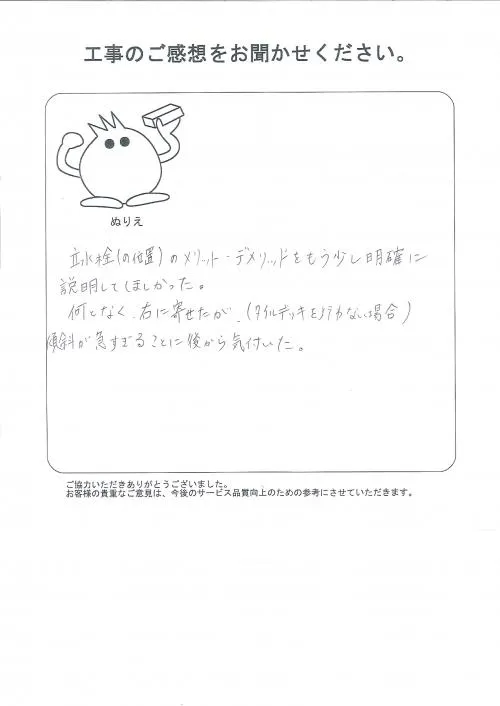 工事のご感想をお聞かせください。
ぬりえ
立水栓(の位置)のメリット・デメリットをもう少し明確に
説明してほしかった。
何となく、右に寄せたが、(タイルデッキを行わない場合)
傾斜が急すぎることに後から気付いた。
ご協力いただきありがとうございました。
お客様の貴重なご意見は、今後のサービス品質向上のための参考にさせていただきます。